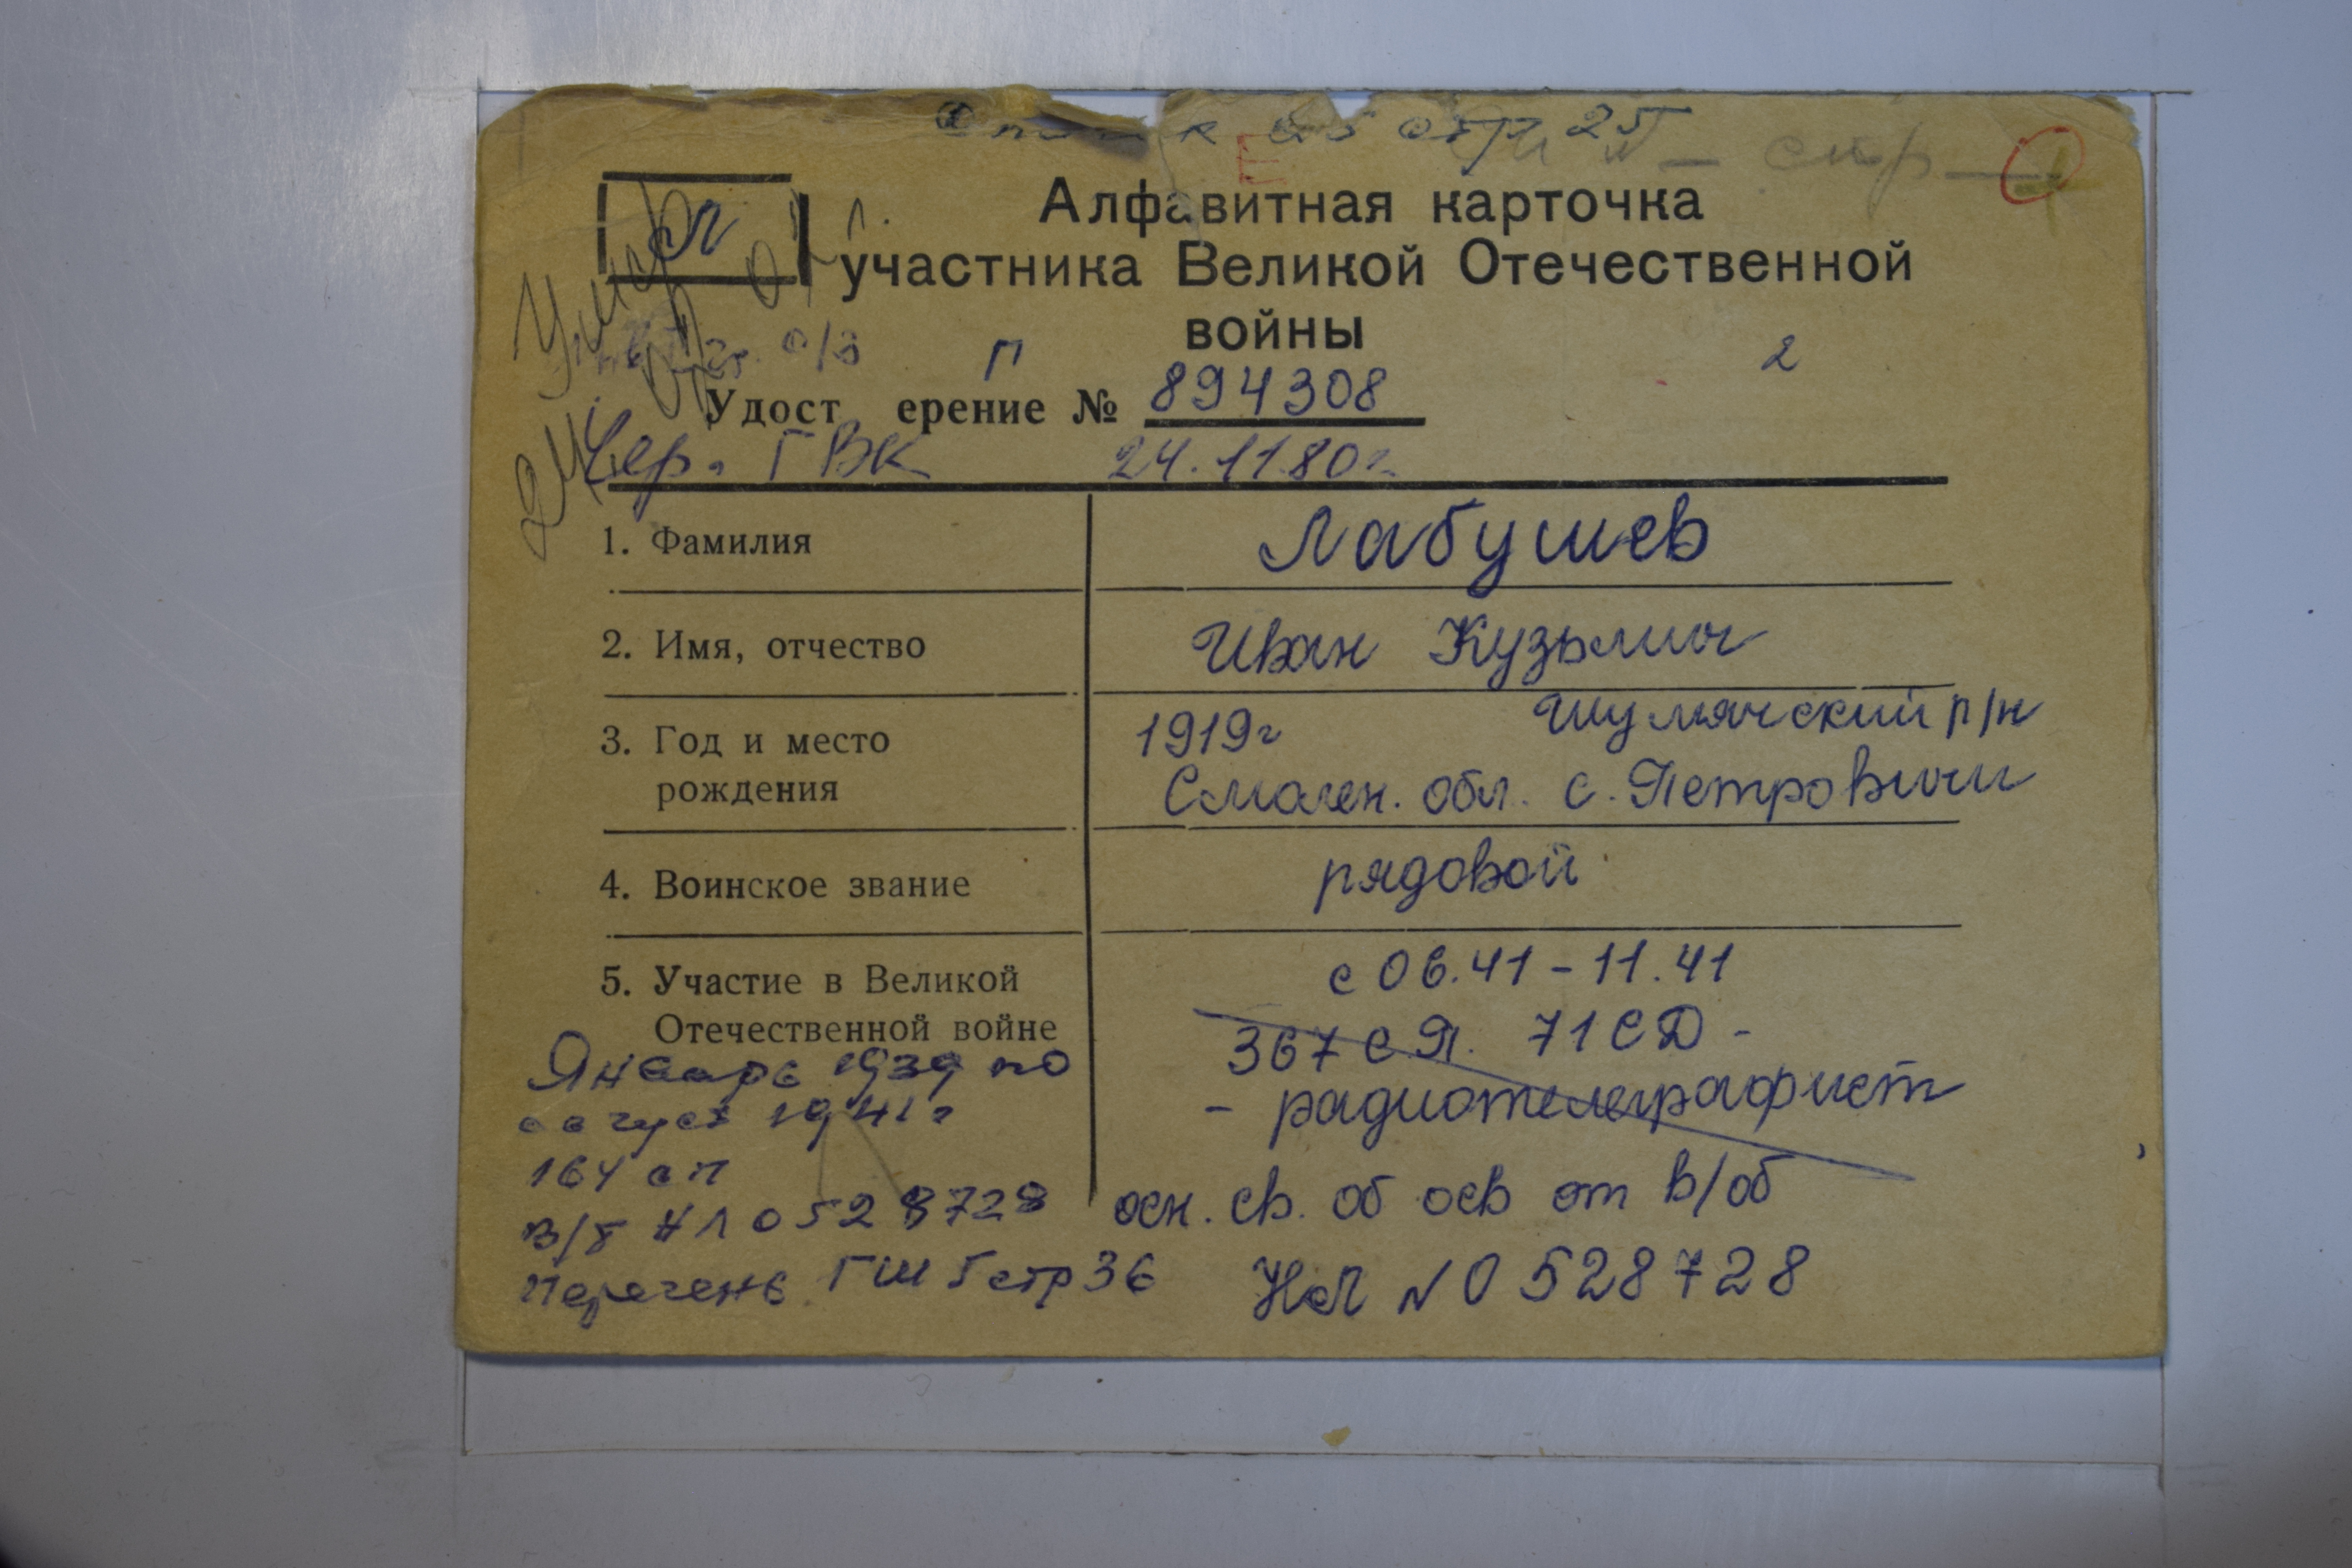 стр
Л
Алфавитная карточка
участника Великой Отечественной
войны
Умер
П
2
Удост ерение № 894308
Чер. ГВК 24.11.80г.
1. Фамилия Лабушев
2. Имя, отчество Иван Кузьмич
3. Год и место рождения 1919г Шумячский р/н
Смолен. обл. с. Петровичи
4. Воинское звание рядовой
5. Участие в Великой Отечественной войне с 06.41 - 11.41
367 СП. 71 СД -
- радиотелеграфист
Январь 1939 по
август 1941г
164 сп
в/б НЛ 0528728
Перечень ГШ 5 стр 36
осн. св. об осв от в/об
НЛ № 0528728